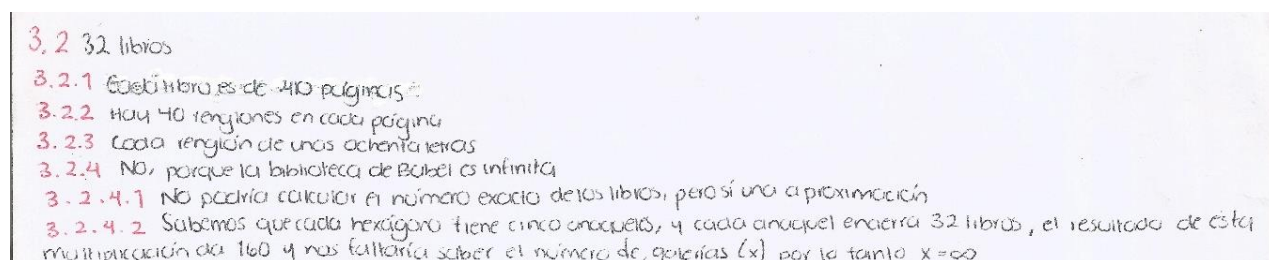 3.2 32 libros
3.2.1 Cada libro es de 410 páginas
3.2.2 Hay 40 renglones en cada página
3.2.3 Cada renglón de unas ochenta letras
3.2.4 NO, porque la biblioteca de Babel es infinita
3.2.4.1 No podría calcular el número exacto de los libros, pero sí una aproximación
3.2.4.2 Sabemos que cada hexágono tiene cinco anaqueles, y cada anaquel encierra 32 libros, el resultado de esta
multiplicación da 160 y nos faltaría saber el número de galerías (x) por lo tanto x=∞